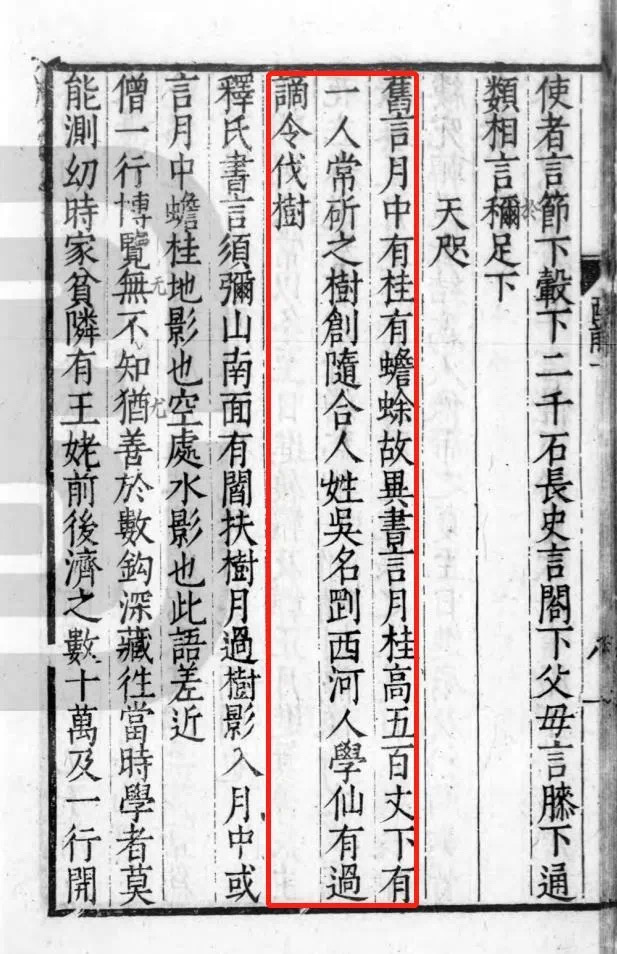 使者言節下轂下二千石長史言閤下父母言膝下通
類相言稱足下
於
天咫
舊言月中有桂有蟾蜍故異書言月桂高五百丈下有
一人常斫之樹創隨合人姓吳名剛西河人學仙有過
謫令伐樹
釋氏書言須彌山南面有閻扶樹月過樹影入月中或
言月中蟾桂地影也空處水影也此語差近
僧一行博覽無不知猶善於數鈎深藏徃當時學者莫
无
尤
能測幼時家貧隣有王姥前後濟之數十萬及一行開